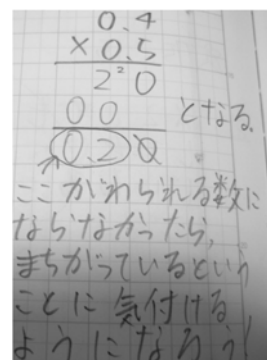 0.4
× 0.5
2²0
00 となる。
0.20
ここがわられる数に
ならなかったら,
まちがっているという
ことに気付ける
ようになろう!